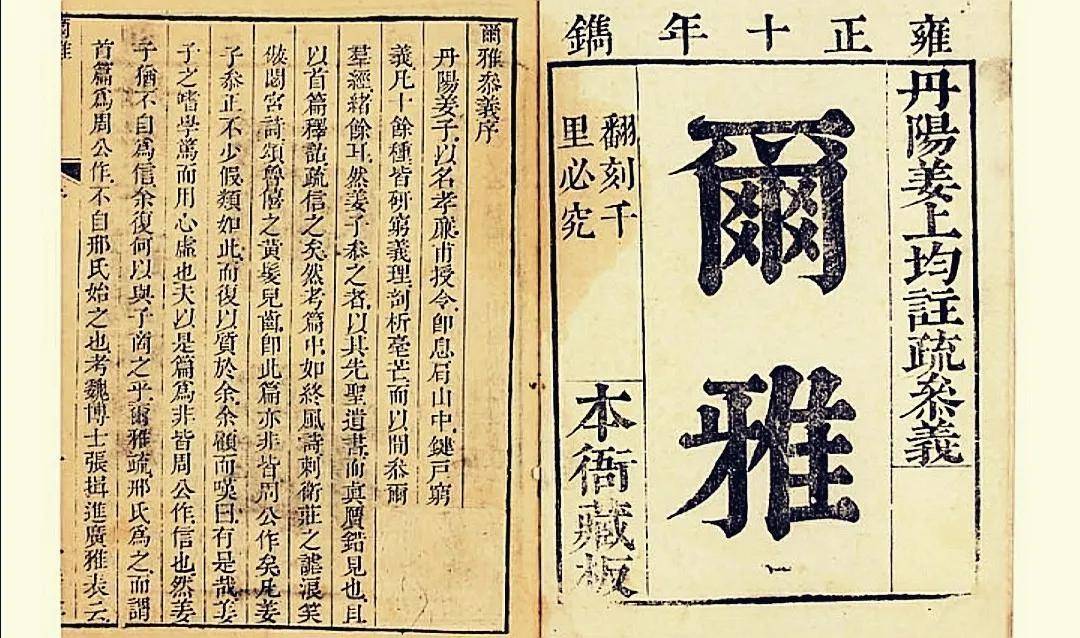 雍正十年鐫
丹陽姜上均註疏叅義
爾雅
一
翻刻千
里必究
本衙藏板
爾雅叅義序
丹陽姜子以名孝廉甫授令卽息肩山中鍵戸窮
義凡十餘種皆硏窮義理剖析毫芒而以間叅爾
羣經緒餘耳然姜子叅之者以其先聖遺書而眞贗錯見也且
以首篇釋詁疏信之矣然考篇中如終風詩刺衛莊之謔浪笑
傲閟宮詩頌魯僖之黃髮兒齒卽此篇亦非皆周公作矣凡姜
子叅正不少假類如此而復以質於余余顧而嘆曰有是哉姜
子之嗜學篤而用心虛也夫以是篇爲非皆周公作信也然姜
子猶不自爲信余復何以與子商之乎爾雅疏邢氏爲之而謂
首篇爲周公作不自邢氏始之也考魏博士張揖進廣雅表云